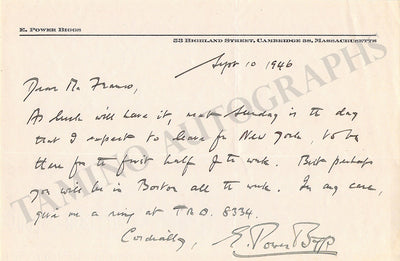 E. Power Biggs
53 Highland Street, Cambridge 38, Massachusetts
Sept 10 1946
Dear Mr Franco,
As luck will have it, next Sunday is the day
that I expect to leave for New York, to be
there for the first half of the week. But perhaps
you will be in Boston all the week. In any case,
give me a ring at TRO. 8334.
Cordially, E. Power Biggs
TAMINO AUTOGRAPHS